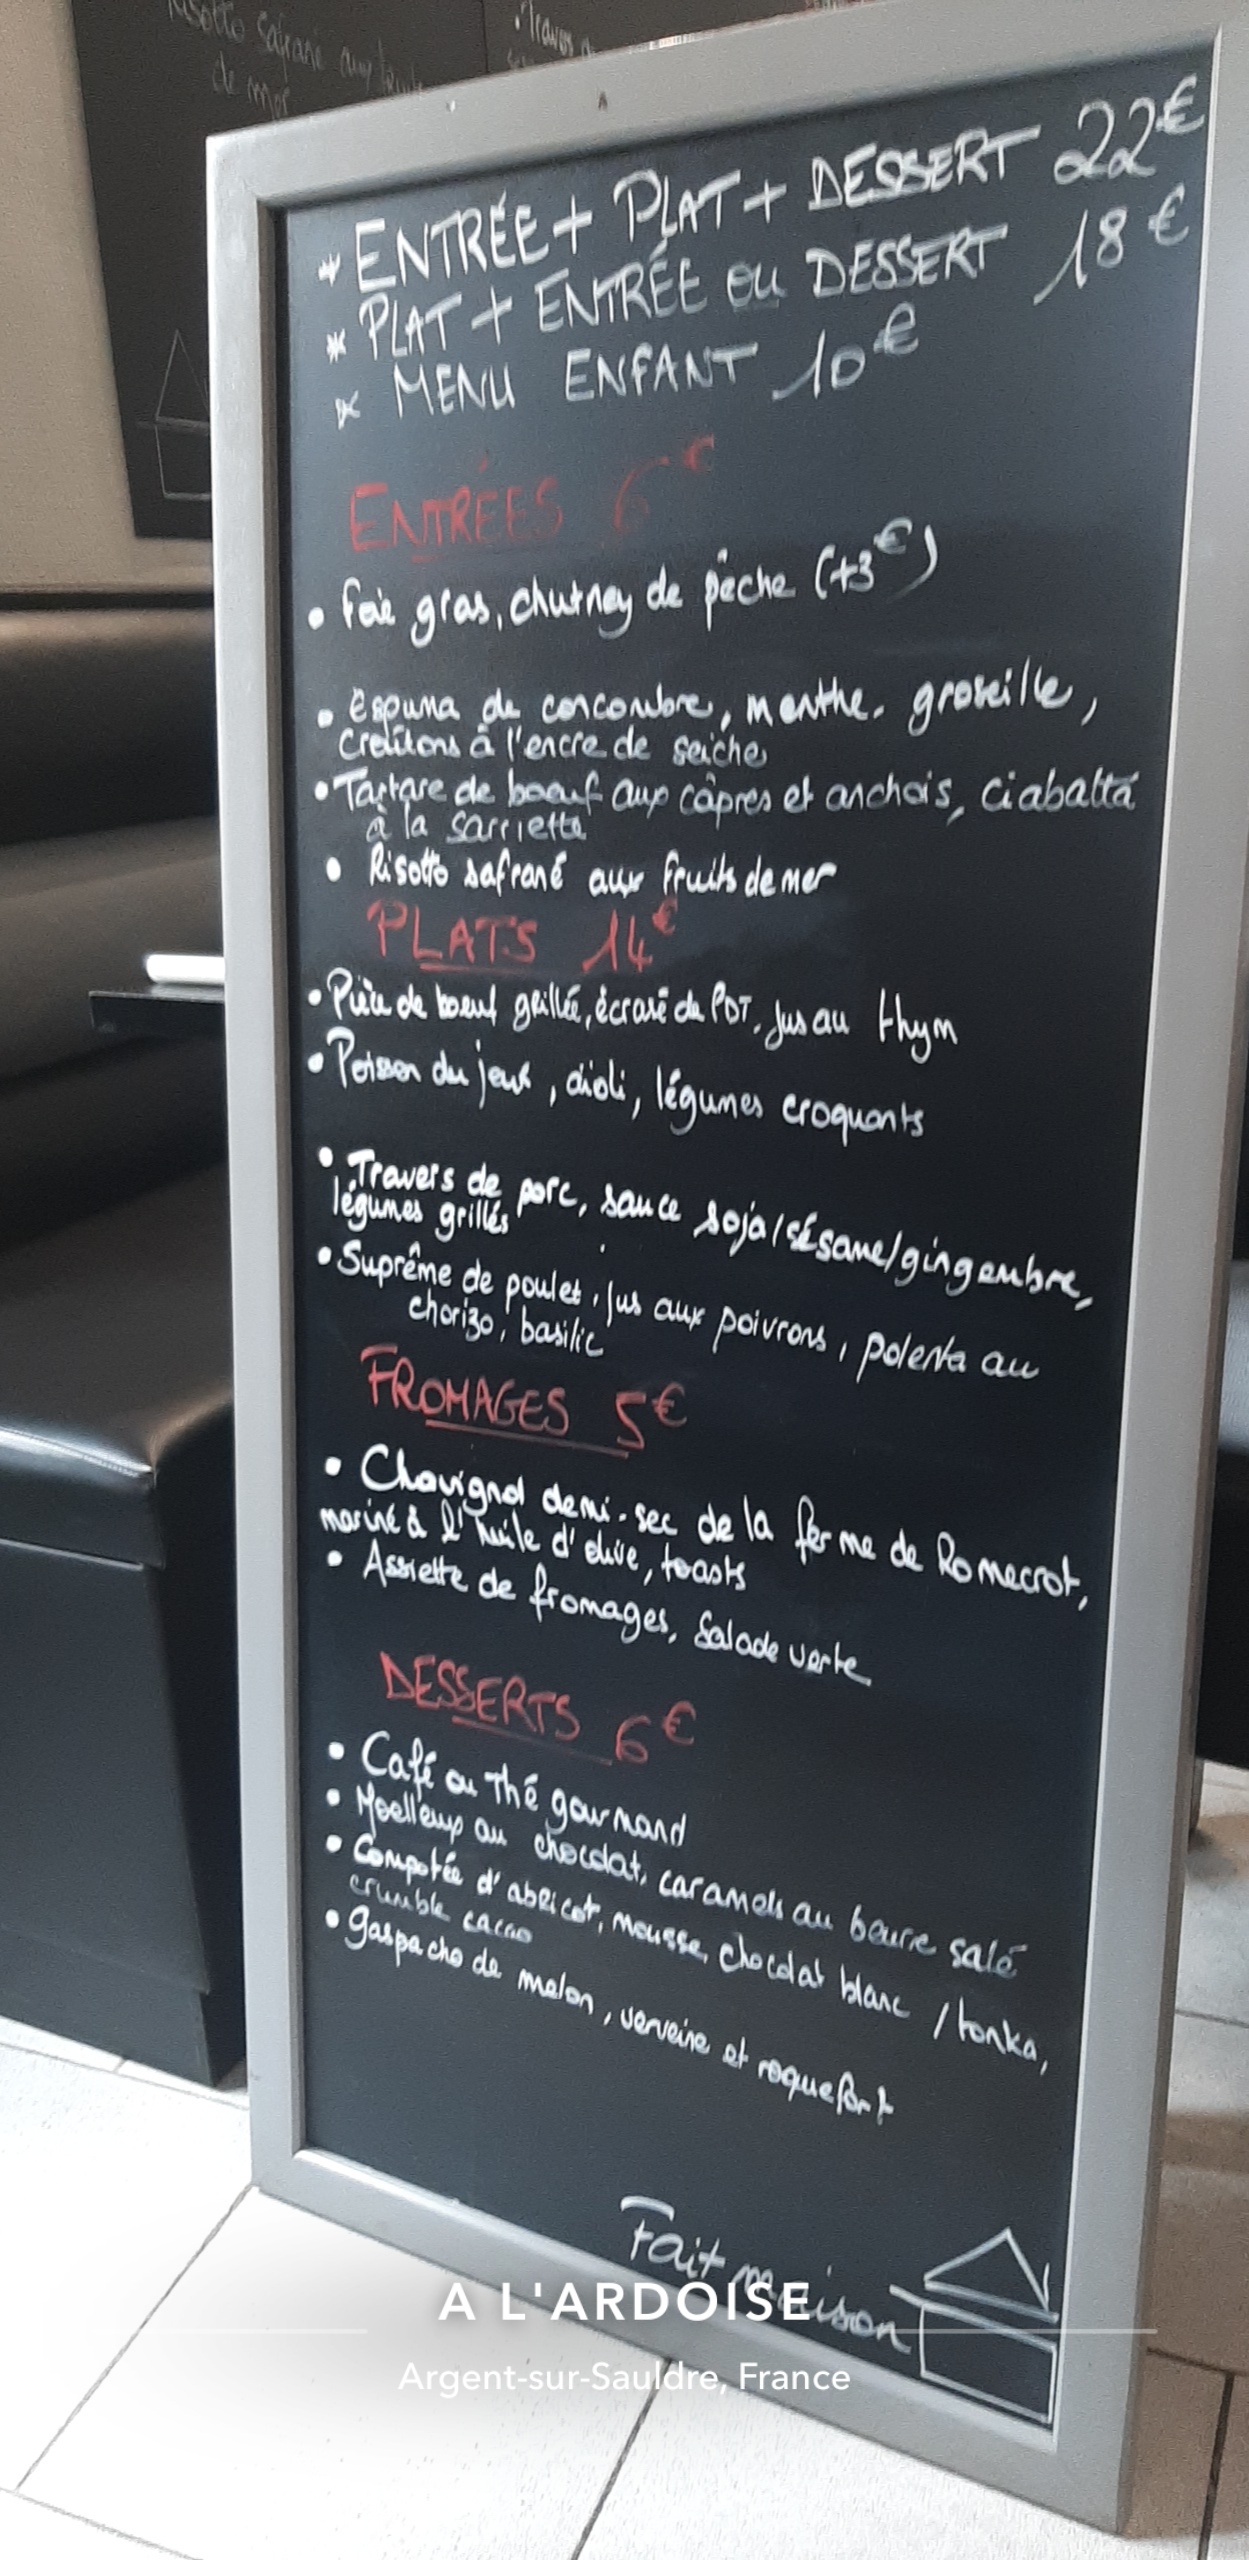 Risotto safrané aux fruits
de mer
• Travers
* ENTRÉE + PLAT + DESSERT 22€
* PLAT + ENTRÉE OU DESSERT 18€
* MENU ENFANT 10€
ENTRÉES 6€
• Foie gras, chutney de pêche (+3€)
• Espuma de concombre, menthe, groseille,
croûtons à l'encre de seiche
• Tartare de boeuf aux câpres et anchois, ciabatta
à la sarriette
• Risotto safrané aux fruits de mer
PLATS 14€
• Pièce de boeuf grillée, écrasé de PDT, jus au thym
• Poisson du jour, aïoli, légumes croquants
• Travers de porc, sauce soja/sésame/gingembre,
légumes grillés
• Suprême de poulet, jus aux poivrons, polenta au
chorizo, basilic
FROMAGES 5€
• Chavignol demi-sec de la ferme de Romecrot,
mariné à l'huile d'olive, toasts
• Assiette de fromages, salade verte
DESSERTS 6€
• Café ou Thé gourmand
• Moelleux au chocolat, caramels au beurre salé
• Compotée d'abricot, mousse chocolat blanc / tonka,
crumble cacao
• gaspacho de melon, verveine et roquefort
Fait maison
A L'ARDOISE
Argent-sur-Sauldre, France